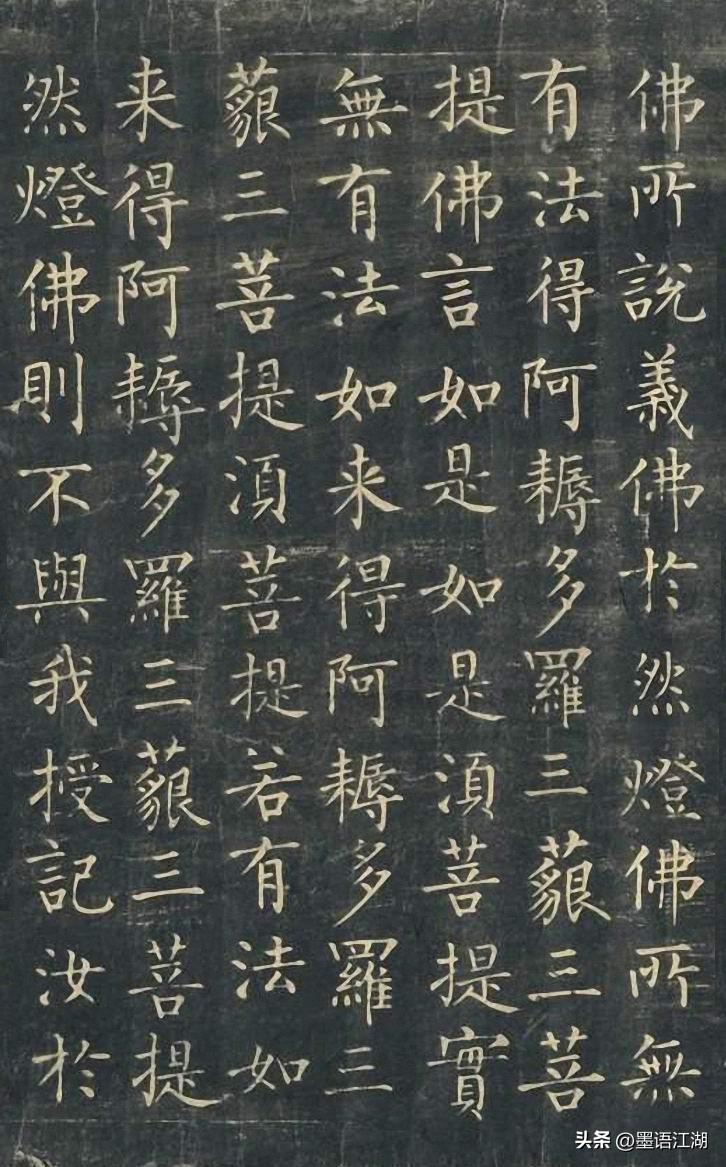 佛所說義佛於然燈佛所無
有法得阿耨多羅三藐三菩
提佛言如是如是湏菩提實
無有法如来得阿耨多羅三
藐三菩提湏菩提若有法如
来得阿耨多羅三藐三菩提
然燈佛則不與我授記汝於
头条 @墨语江湖